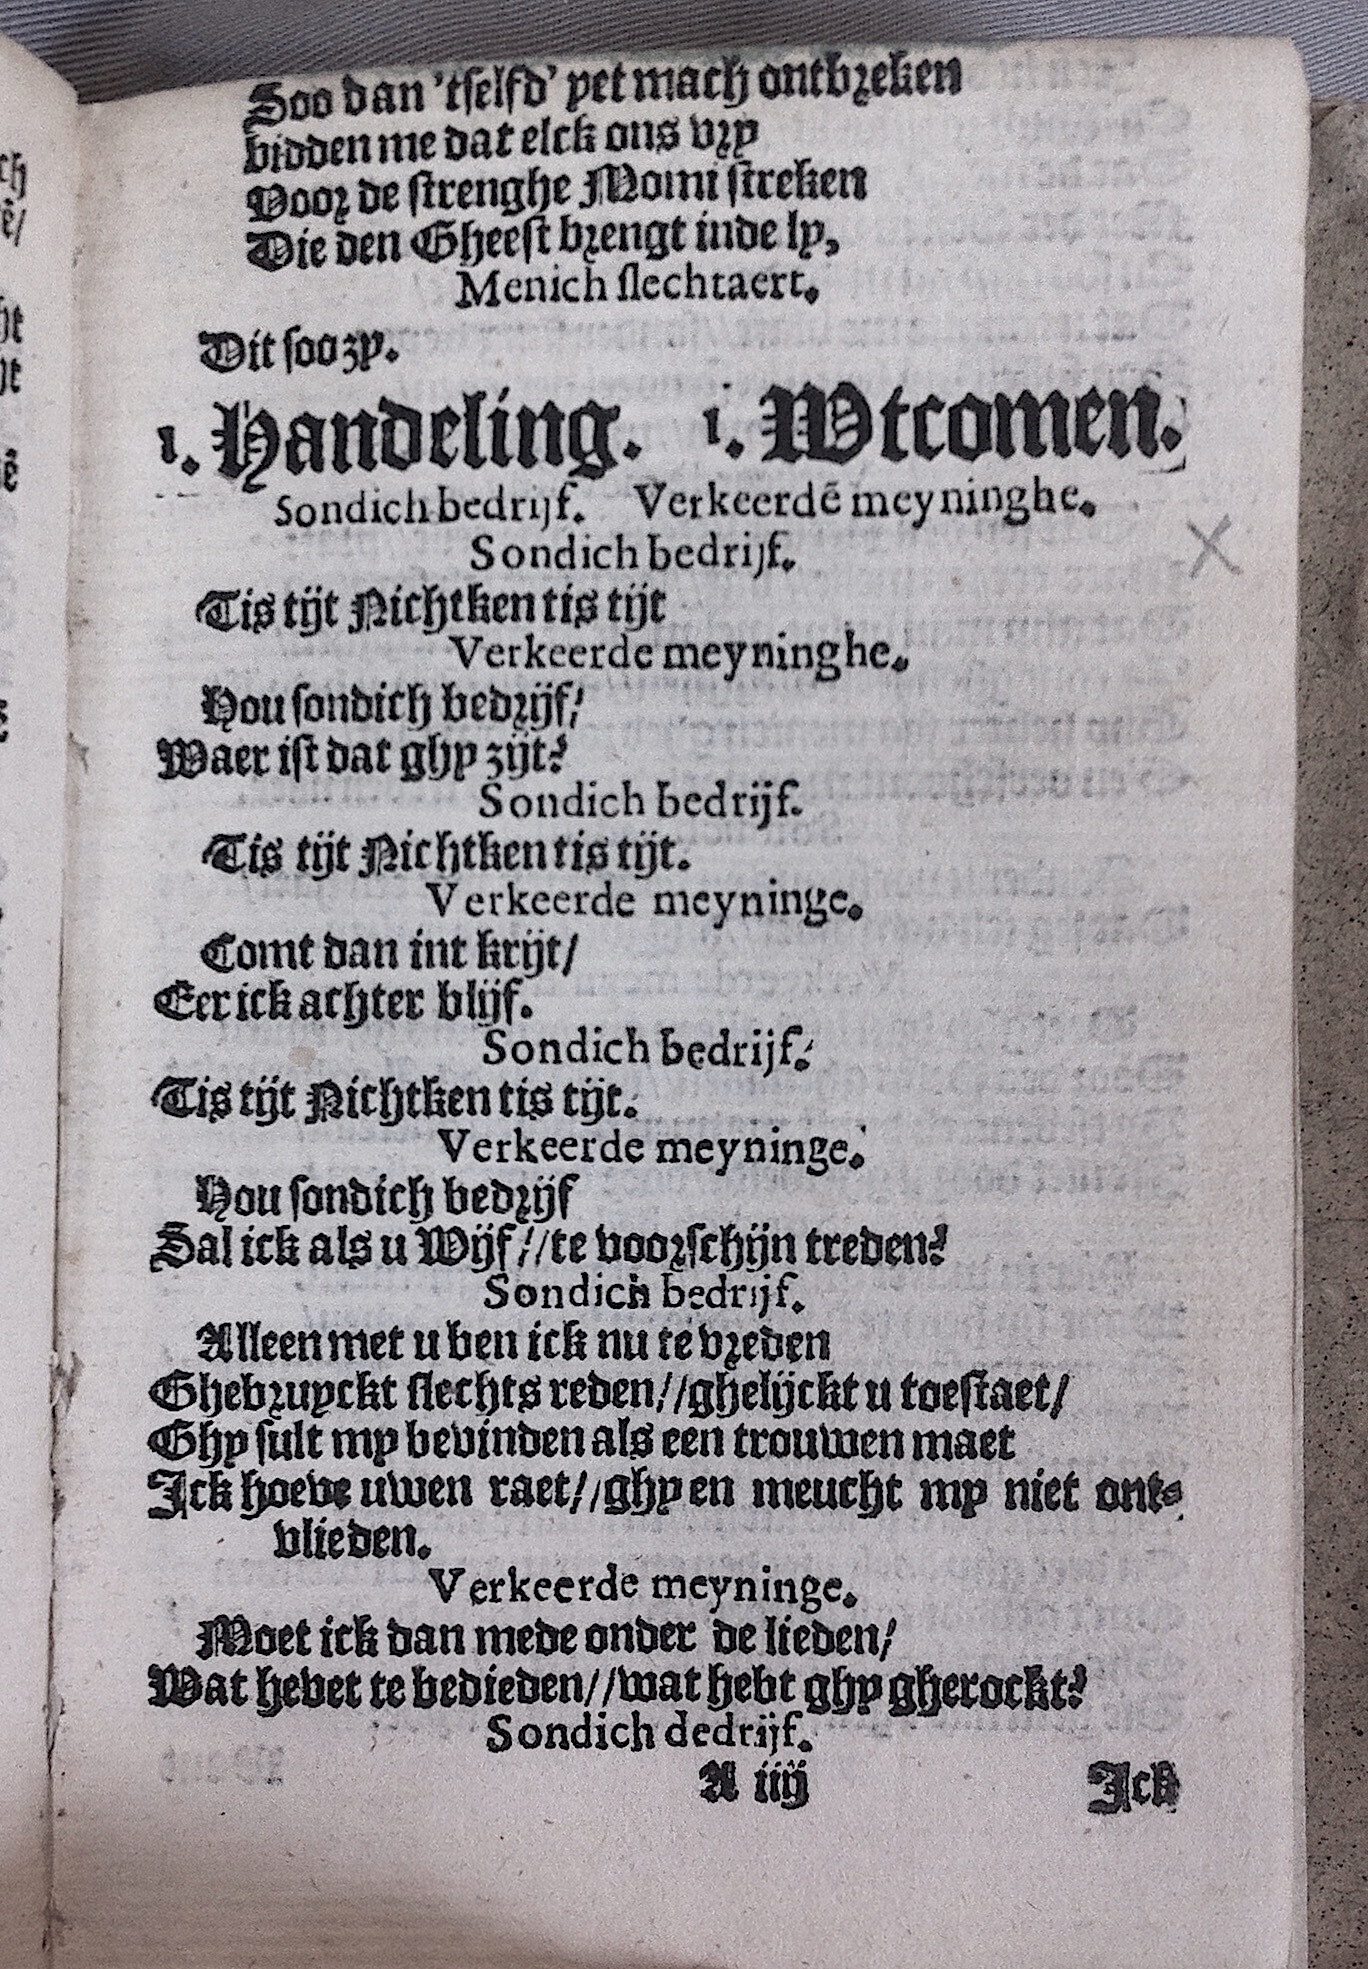 Soo dan 'tselfd' yet mach ontbreken
bidden me dat elck ons vry
Voor de strenghe Momi streken
Die den Gheest brengt inde ly,
Menich slechtaert.
Dit soo zy.
1. Handeling. 1. Wtcomen.
Sondich bedrijf. Verkeerdē meyninghe.
Sondich bedrijf.
Tis tijt Nichtken tis tijt
Verkeerde meyninghe.
Hou sondich bedrijf/
Waer ist dat ghy zijt?
Sondich bedrijf.
Tis tijt Nichtken tis tijt.
Verkeerde meyninge.
Comt dan int krijt/
Eer ick achter blijf.
Sondich bedrijf.
Tis tijt Nichtken tis tijt.
Verkeerde meyninge.
Hou sondich bedrijf
Sal ick als u Wijf//te voorschijn treden?
Sondich bedrijf.
Alleen met u ben ick nu te vreden
Ghebruyckt slechts reden//ghelijckt u toestaet/
Ghy sult my bevinden als een trouwen maet
Ick hoeve uwen raet//ghy en meucht my niet ont-
vlieden.
Verkeerde meyninge.
Moet ick dan mede onder de lieden/
Wat hevet te bedieden//wat hebt ghy gherockt?
Sondich dedrijf.
A iiij Ick